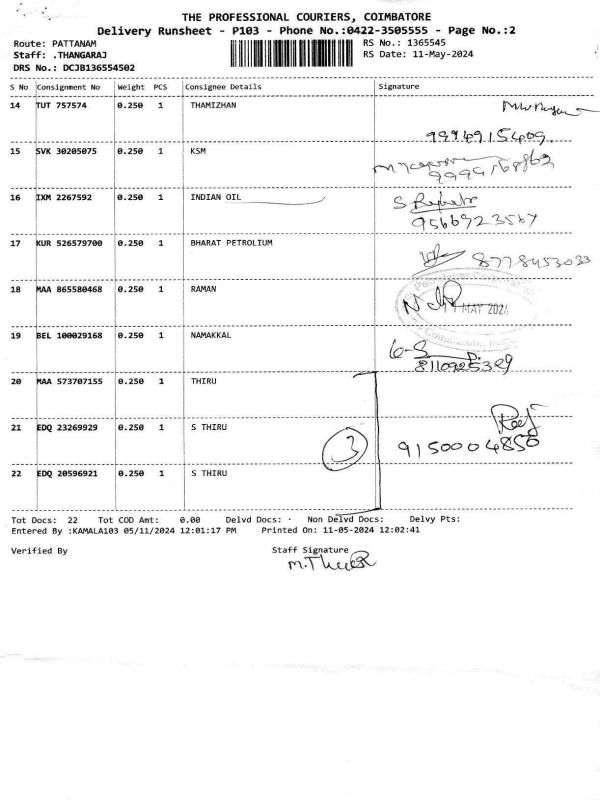 THE PROFESSIONAL COURIERS, COIMBATORE
Delivery Runsheet - P103 - Phone No.:0422-3505555 - Page No.:2
Route: PATTANAM RS No.: 1365545
Staff: .THANGARAJ RS Date: 11-May-2024
DRS No.: DCJB136554502
S No Consignment No Weight PCS Consignee Details Signature
14 TUT 757574 0.250 1 THAMIZHAN
9994915409
15 SVK 30205075 0.250 1 KSM
16 IXM 2267592 0.250 1 INDIAN OIL
9566923567
17 KUR 526579700 0.250 1 BHARAT PETROLIUM
8778453033
18 MAA 865580468 0.250 1 RAMAN
MAY 2024
19 BEL 100029168 0.250 1 NAMAKKAL
8110925329
20 MAA 573707155 0.250 1 THIRU
21 EDQ 23269929 0.250 1 S THIRU
3 9150004850
22 EDQ 20596921 0.250 1 S THIRU
Tot Docs: 22 Tot COD Amt: 0.00 Delvd Docs: Non Delvd Docs: Delvy Pts:
Entered By :KAMALA103 05/11/2024 12:01:17 PM Printed On: 11-05-2024 12:02:41
Verified By Staff Signature